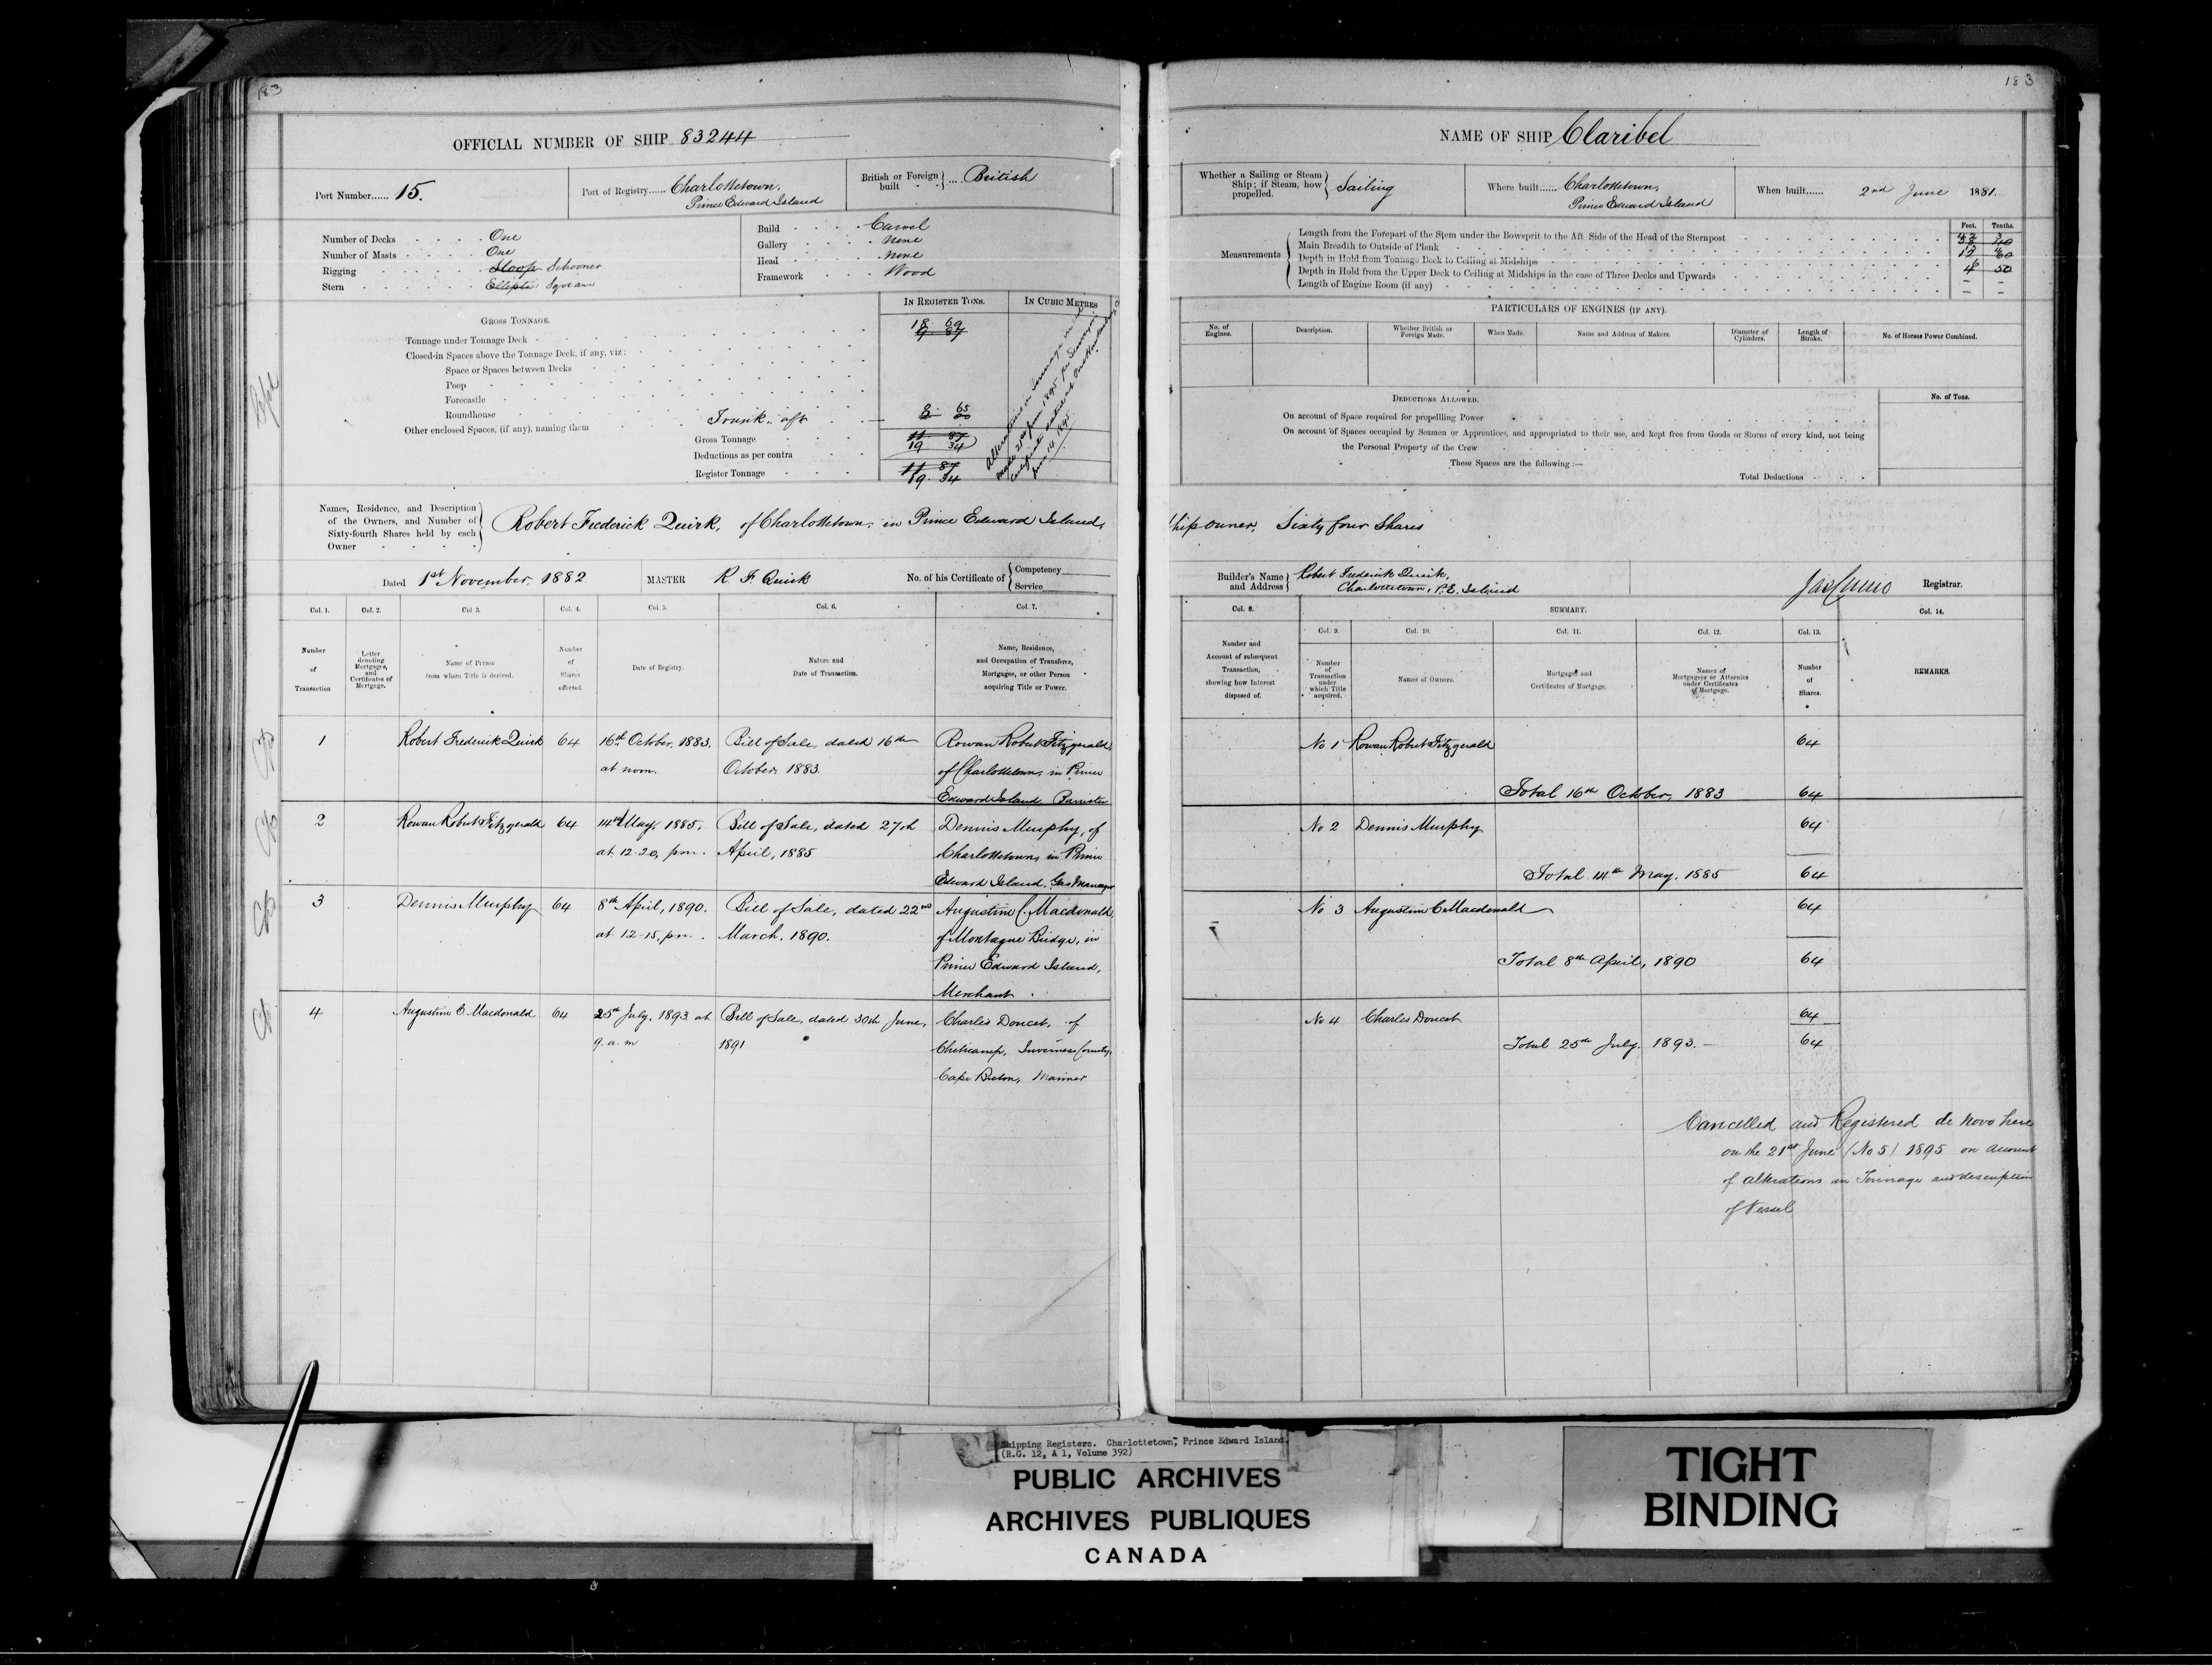 183
OFFICIAL NUMBER OF SHIP 83244
Port Number...... 15.
Port of Registry...... Charlottetown,
Prince Edward Island
British or Foreign built .... British
Number of Decks . . . . One
Number of Masts . . . . One
Rigging . . . . Sloop Schooner
Stern . . . . Elliptic Square
Build . . . . Carvel
Gallery . . . . None
Head . . . . None
Framework . . . . Wood
GROSS TONNAGE.
IN REGISTER TONS.
IN CUBIC METRES
Tonnage under Tonnage Deck 18 69
9 87
Closed-in Spaces above the Tonnage Deck, if any, viz:
Space or Spaces between Decks
Poop
Forecastle
Roundhouse
Other enclosed Spaces, (if any), naming them Trunk. aft 65
Gross Tonnage 11 87
19 34
Deductions as per contra
Register Tonnage 11 87
19. 34
Names, Residence, and Description
of the Owners, and Number of
Sixty-fourth Shares held by each
Owner
Robert Frederick Quirk, of Charlottetown, in Prince Edward Island,
Dated 1st November, 1882
MASTER R. F. Quirk
No. of his Certificate of Competency
Service
Col. 1. Col. 2. Col 3. Col. 4. Col. 5. Col. 6. Col. 7.
Number of Transaction
Letter denoting Mortgages, and Certificates of Mortgage.
Name of Person from whom Title is derived.
Number of Shares affected.
Date of Registry.
Nature and Date of Transaction.
Name, Residence, and Occupation of Transferee, Mortgagee, or other Person acquiring Title or Power.
1 Robert Frederick Quirk 64 16th October, 1883. Bill of Sale, dated 16th Rowan Robert Fitzgerald
at noon. October, 1883. of Charlottetown, in Prince
Edward Island Barrister
2 Rowan Robert Fitzgerald 64 14th May, 1885, Bill of Sale, dated 27th Dennis Murphy, of
at 12-20, pm. April, 1885 Charlottetown, in Prince
Edward Island, Gas Manager
3 Dennis Murphy 64 8th April, 1890. Bill of Sale, dated 22nd Augustine C. Macdonald
at 12-15, pm. March, 1890. of Montague Bridge, in
Prince Edward Island,
Merchant
4 Augustine C. Macdonald 64 25th July, 1893 at Bill of Sale, dated 30th June, Charles Doucet, of
9. a. m 1891 Chetecamp, Inverness County,
Cape Breton, Mariner
183
NAME OF SHIP Claribel
Whether a Sailing or Steam Ship; if Steam, how propelled. Sailing
Where built...... Charlottetown,
Prince Edward Island
When built...... 2nd June 1881.
Measurements
Feet. Tenths.
Length from the Forepart of the Stem under the Bowsprit to the Aft Side of the Head of the Sternpost
Main Breadth to Outside of Plank
Depth in Hold from Tonnage Deck to Ceiling at Midships
Depth in Hold from the Upper Deck to Ceiling at Midships in the case of Three Decks and Upwards
Length of Engine Room (if any)
PARTICULARS OF ENGINES (IF ANY).
No. of Engines.
Description.
Whether British or Foreign Made.
When Made.
Name and Address of Makers.
Diameter of Cylinders.
Length of Stroke.
No. of Horses Power Combined.
DEDUCTIONS ALLOWED.
No. of Tons.
On account of Space required for propelling Power
On account of Spaces occupied by Seamen or Apprentices, and appropriated to their use, and kept free from Goods or Stores of every kind, not being
the Personal Property of the Crew
These Spaces are the following :—
Total Deductions
Ship owner, Sixty four Shares
Builder's Name and Address Robert Frederick Quirk,
Charlottetown, P.E. Island
Registrar.
Col. 8. SUMMARY. Col. 14.
Col. 9. Col. 10. Col. 11. Col. 12. Col. 13.
Number and Account of subsequent Transaction, showing how Interest disposed of.
Number of Transaction under which Title acquired.
Names of Owners.
Mortgages and Certificates of Mortgage.
Names of Mortgagees or Attornies under Certificates of Mortgage.
Number of Shares.
REMARKS.
No 1 Rowan Robert Fitzgerald 64
Total 16th October, 1883 64
No 2 Dennis Murphy 64
Total 14th May, 1885 64
No 3 Augustine C. Macdonald 64
Total 8th April, 1890 64
No. 4 Charles Doucet 64
Total 25th July, 1893. 64
Cancelled and Registered de Novo here
on the 21st June (No 5) 1895 on account
of alterations in Tonnage and description
of Vessel
Shipping Registers. Charlottetown, Prince Edward Island.
(R.G. 12, A 1, Volume 392)
PUBLIC ARCHIVES
ARCHIVES PUBLIQUES
CANADA
TIGHT
BINDING